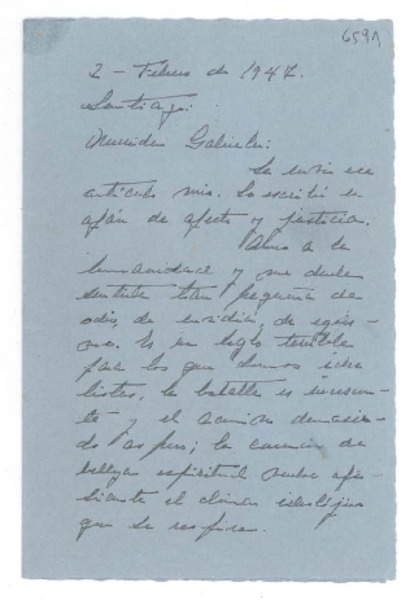 659A
2 - Febrero de 1947.
Santiago.
Gabriela:
Le envío ese
artículo mío. Lo escribí en
afán de afecto y justicia.
Amo a la
humanidad y me duele
sentirla tan pequeña de
odio, de envidia, de egoís-
mo. Es un siglo terrible
para los que somos idea-
listas, la batalla es incesan-
te y el camino demasia-
do áspero; la carencia de
belleza espiritual vuelve asfi-
xiante el clima ideológico
que se respira.